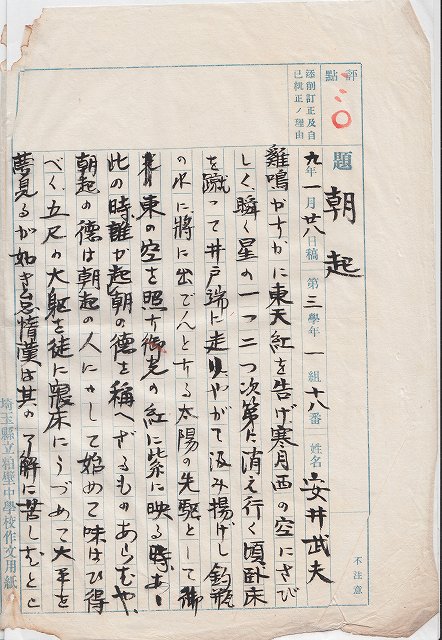 評點
三〇
添削訂正及自己批正ノ理由
題 朝起
九年一月廿八日稿 第三學年一組十八番 姓名 安井武夫
不注意
雞鳴かすかに東天紅を告げ寒月西の空にさび
しく瞬く星の一つ二つ次第に消え行く頃臥床
を蹴つて井戸端に走りやがて汲み揚げし釣瓶
の水に將に出でんとする太陽の先駆として
東の空を照す御光の紅に紫に映る時あゝ
此の時誰か起朝の德を稱へざるものあらむや、
朝起の德は朝起の人にして始めて味はひ得
べく、五尺の大躯を徒に寢床にうづめて太平を
夢見るが如き怠惰漢は其の了解に苦しむとこ
埼玉縣立粕壁中學校作文用紙